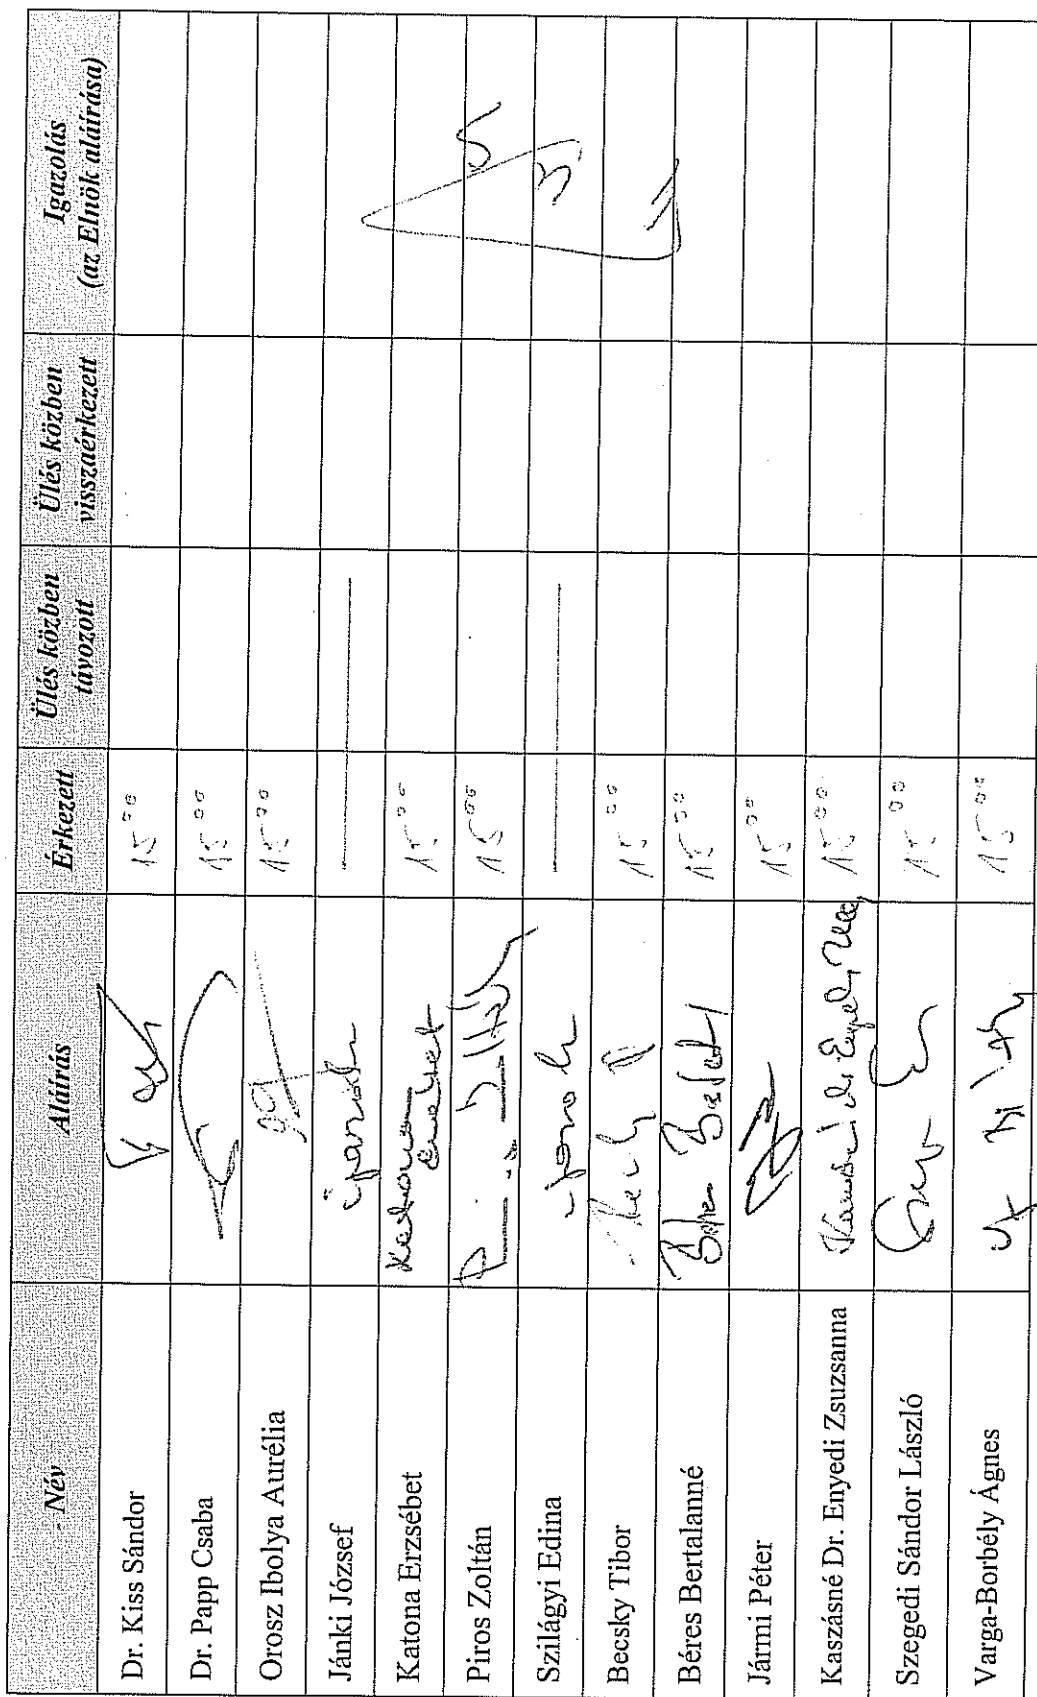 Név Aláírás Érkezett Ülés közben távozott Ülés közben visszaérkezett Igazolás (az Elnök aláírása)
Dr. Kiss Sándor 15⁰⁰
Dr. Papp Csaba 15⁰⁰
Orosz Ibolya Aurélia 15⁰⁰
Jánki József igazolt
Katona Erzsébet Katona Erzsébet 15⁰⁰
Piros Zoltán 15⁰⁰
Szilágyi Edina igazolt
Becsky Tibor 15⁰⁰
Béres Bertalanné 15⁰⁰
Jármi Péter 15⁰⁰
Kaszásné Dr. Enyedi Zsuzsanna 15⁰⁰
Szegedi Sándor László 15⁰⁰
Varga-Borbély Ágnes 15⁰⁰